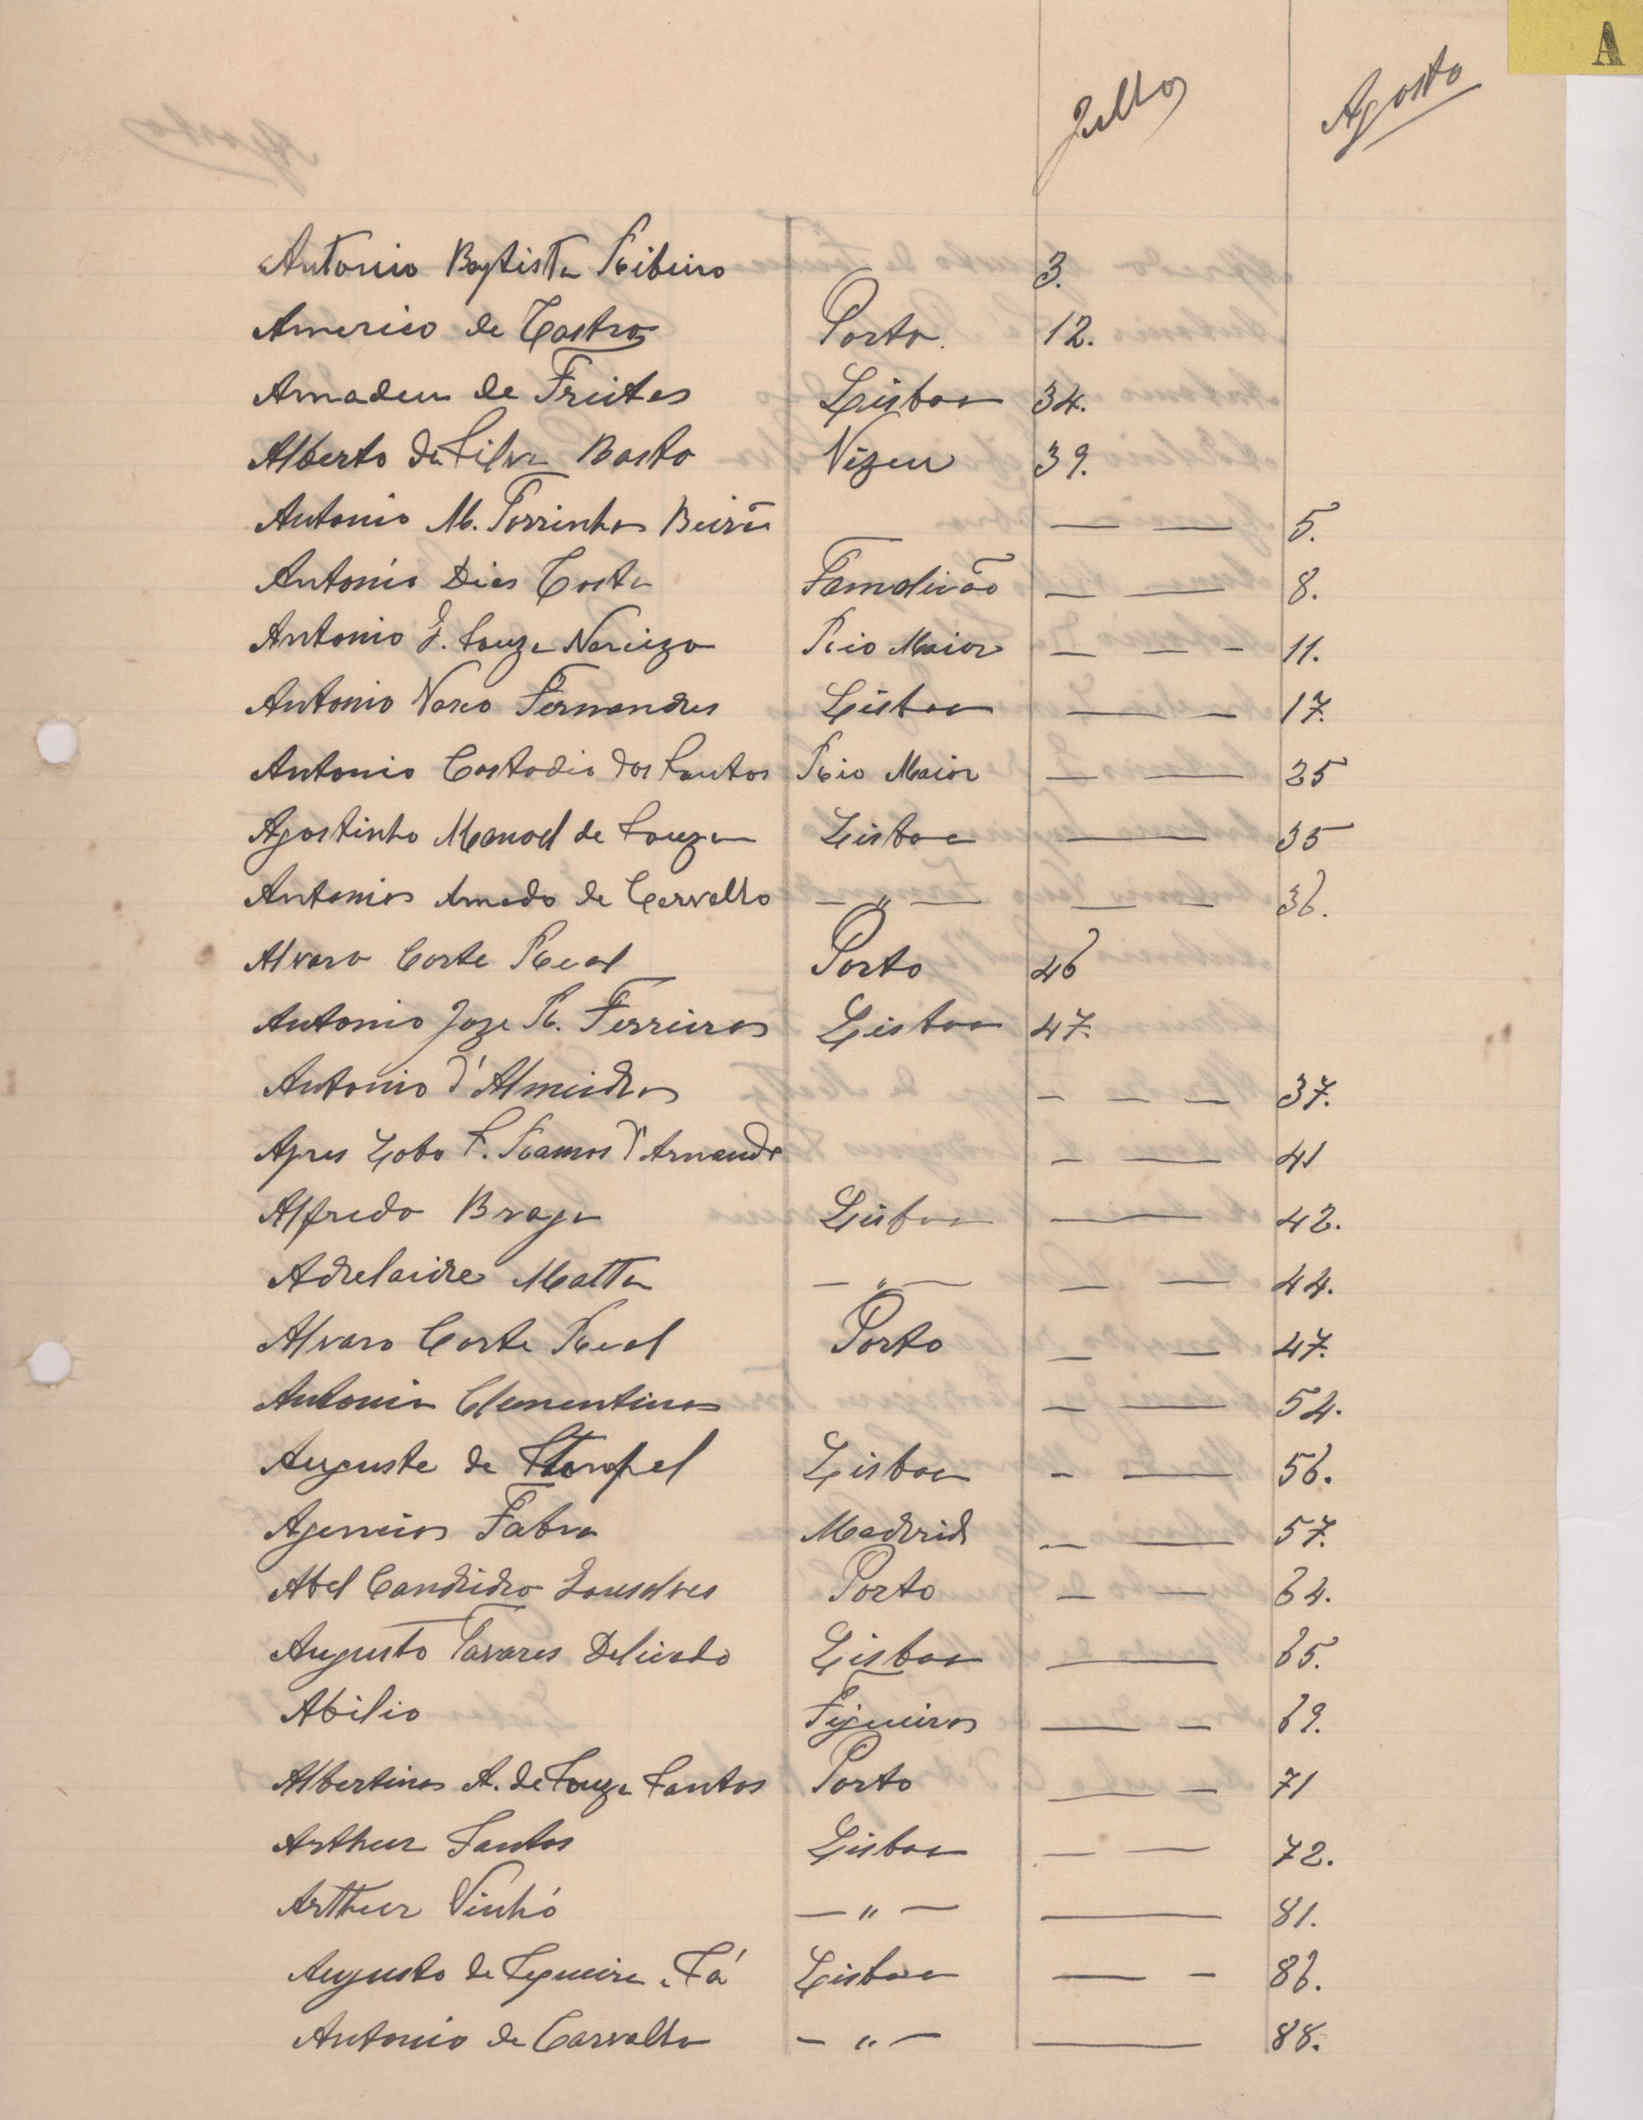 A
Julho
Agosto
Antonio Baptista Ribeiro 3.
Americo de Castro Porto. 12.
Amadeu de Freitas Lisboa 34.
Alberto da Silva Basto Vizeu 39.
Antonio M. Torrinha Beirão — — 5.
Antonio Dias Costa Famalicão — — 8.
Antonio Souza Narcizo Rio Maior — — - 11.
Antonio Vasco Fernandes Lisboa — — 17.
Antonio Custodio dos Santos Rio Maior — — 25
Agostinho Manoel de Souza Lisboa — 35
Antonio Amado de Carvalho — " — — — 36.
Alvaro Corte Real Porto 46
Antonio Joze R. Ferreira Lisboa 47.
Antonio d'Almeida — — — 37.
Lobo S. Ramos d' — — 41
Alfredo Braga Lisboa — 42.
Adelaide Matta — " — — — 44.
Alvaro Corte Real Porto — — 47.
Antonia Clementina — — 54.
Auguste de Lisboa - — 56.
Agencia Fabra Madrid — — 57.
Abel Candido Gonsalves Porto — — 64.
Augusto Tavares Delicado Lisboa — 65.
Abilio Figueira — — 69.
Albertina A. de Souza Santos Porto — — 71
Arthur Santos Lisboa — — 72.
Arthur Vinhó — " — — 81.
Augusto de Sequeira Sá Lisboa — - 86.
Antonio de Carvalho — " — — 88.